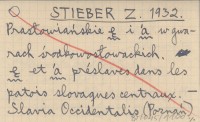 STIEBER Z. 1932.
Prasłowiańskie ę i 'ā w gwa-
rach środkowosłowackich.
ę et 'ā préslaves dans les
patois slovaques centraux. -
Slavia Occidentalis (Poznań)